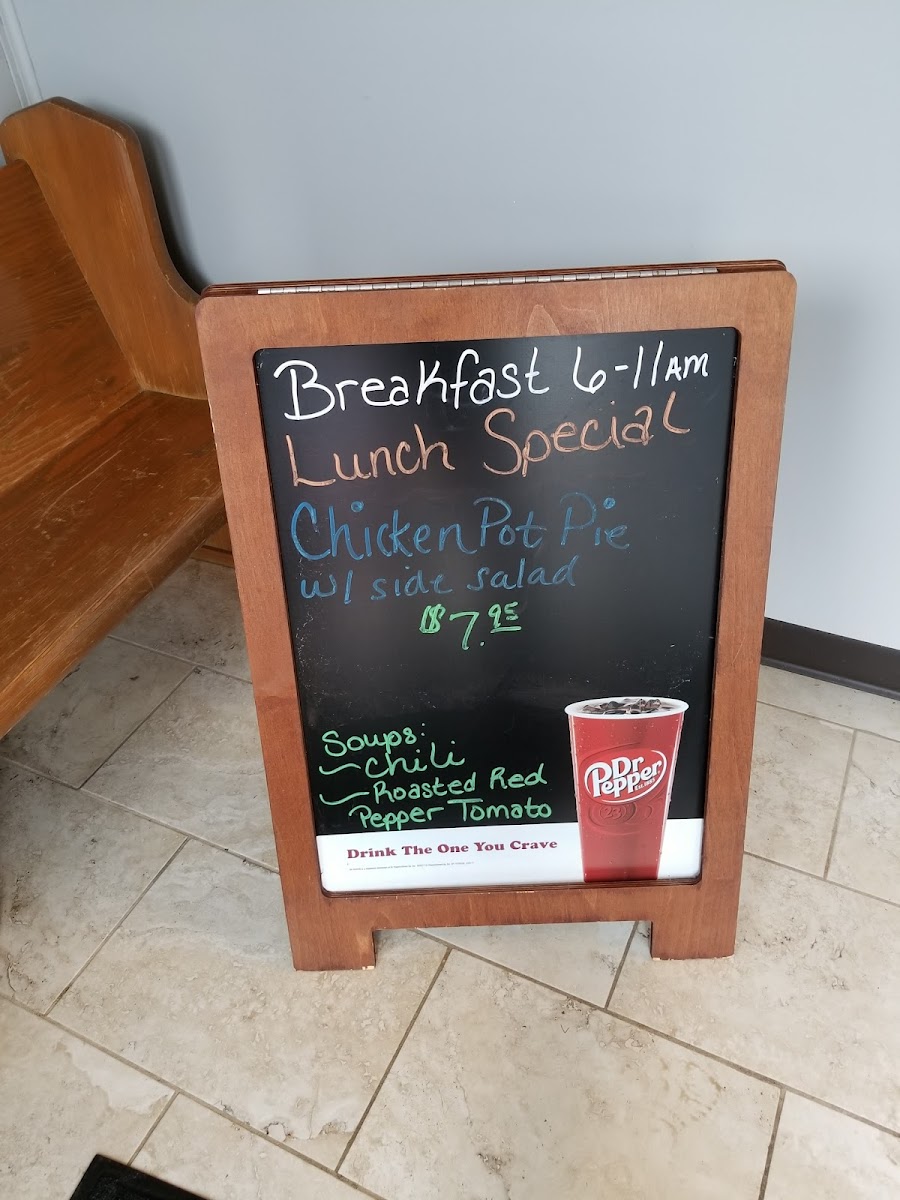 Breakfast 6-11AM
Lunch Special
Chicken Pot Pie
w/ side salad
$7.95
Soups:
- Chili
- Roasted Red
Pepper Tomato
Dr
Pepper
EST. 1885
23
Drink The One You Crave